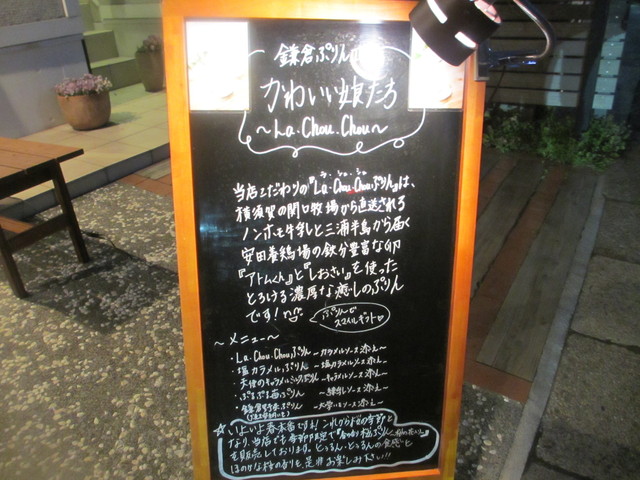 鎌倉ぷりんの
かわいい娘たち
～La・Chou・Chou～
当店こだわりの『La・Chou・Chouぷりん』は、
横須賀の関口牧場から直送される
ノンホモ牛乳と三浦半島から届く
安田養鶏場の鉄分豊富な卵
『アトムくん』と『しおさい』を使った
とろける濃厚な癒しのぷりん
です!
ぷりんで
スマイルギフト♡
～メニュー～
・La・Chou・Chouぷりん～カラメルソース添え～
・塩カラメルぷりん～塩カラメルソース添え～
・天使のキャラメルミルクぷりん～キャラメルソース添え～
・ぷるぷる苺ぷりん～練乳ソース添え～
・鎌倉野菜ぷりん ソース添え～
☆いよいよ春本番です!これからは桜の季節と
なり、当店でも季節限定で『春の香り桜ぷりん
を販売しております。とろんとろんの食感と
ほのかな桜の香りを是非お楽しみ下さい!!!